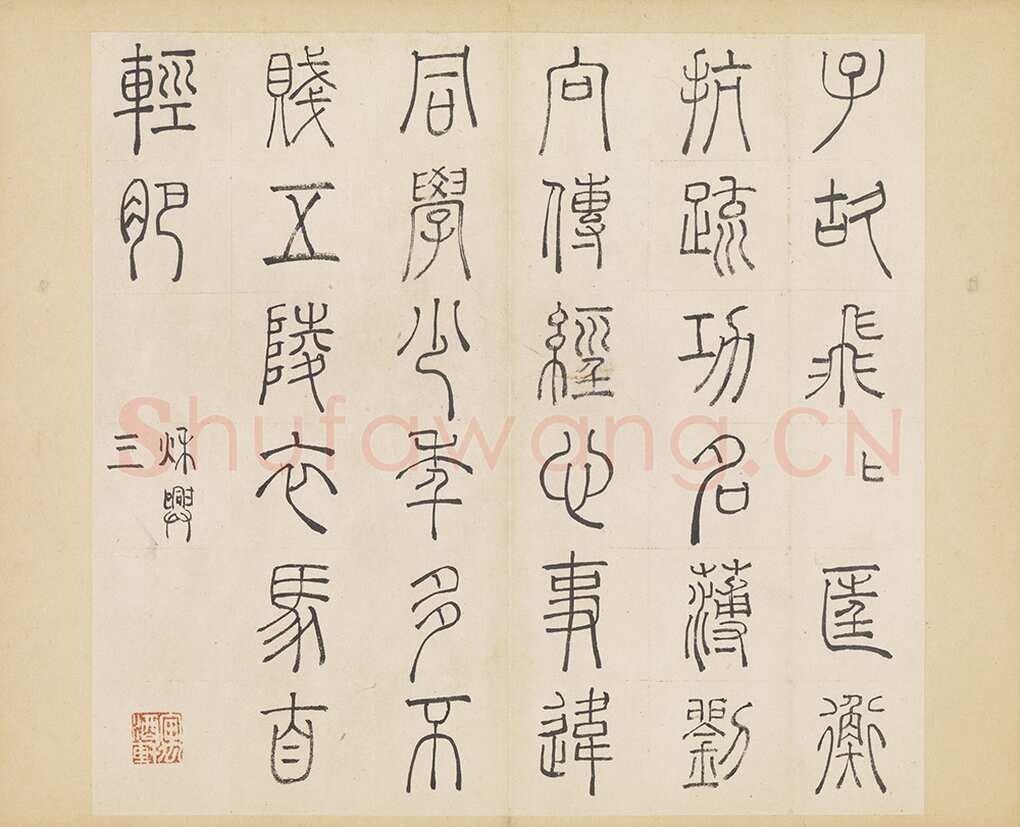 子故飛飛匡衡
抗疏功名薄劉
向傳經心事違
同學少年多不
賤五陵衣馬自
輕肥
秋興
三
Shufawang.CN